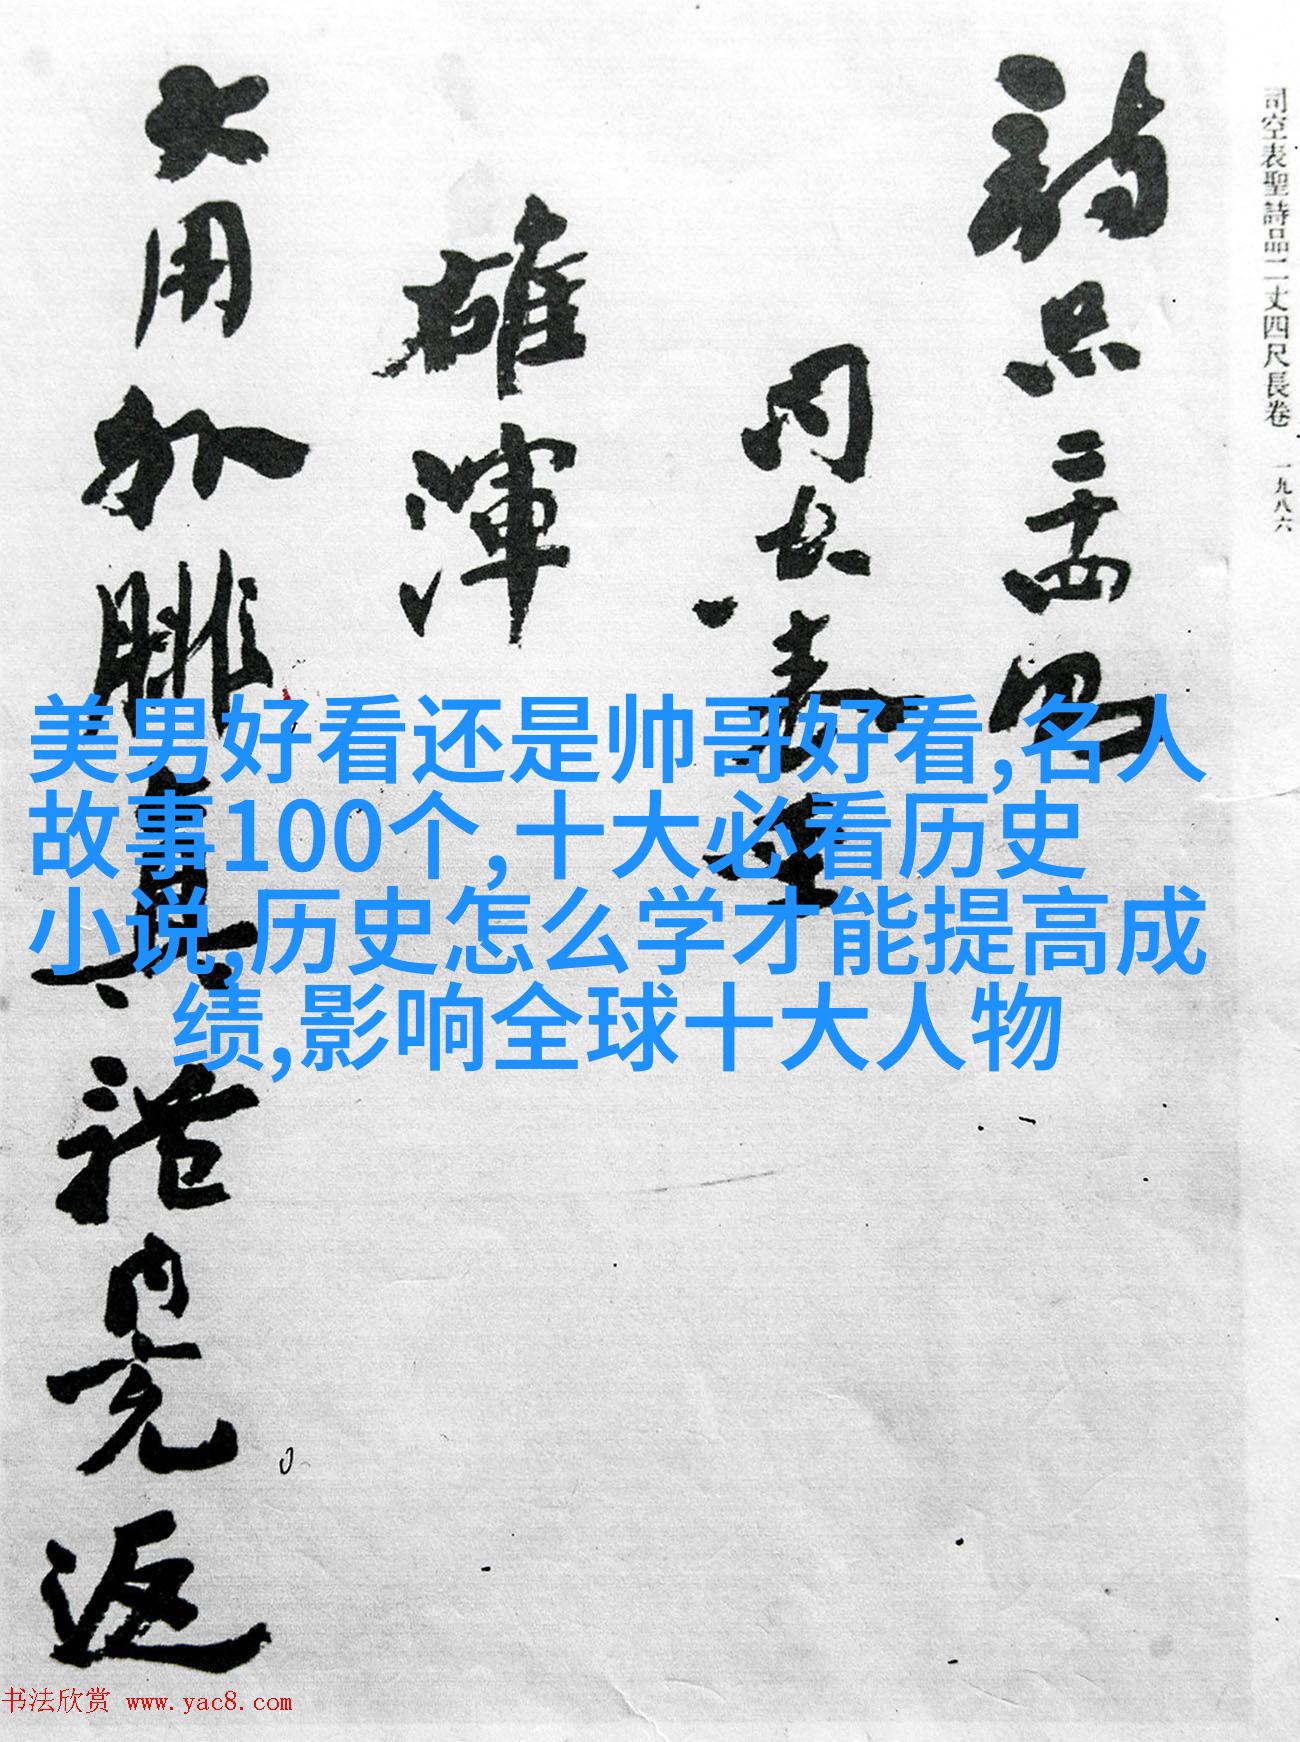 司空表聖詩品二丈四尺長卷 一九八六
詩品二十四則
司空表聖
雄渾
大用外腓真體內充返
美男好看还是帅哥好看,名人
故事100个,十大必看历史
小说,历史怎么学才能提高成
绩,影响全球十大人物
书法欣赏 www.yac8.com